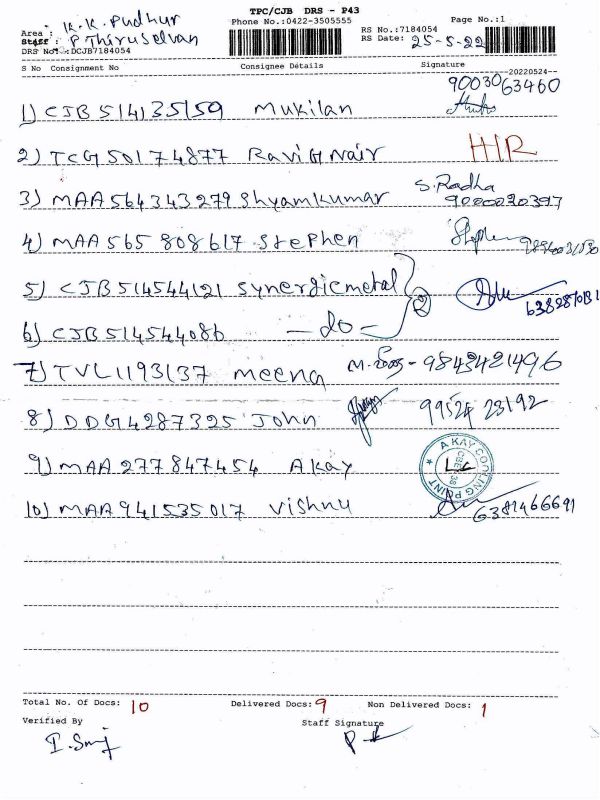 TPC/CJB DRS - P43
Area : K.K. Pudhur Phone No.:0422-3505555 Page No.:1
Staff : P Thiruselvan RS No.:7184054
DRS No. :DCJB7184054 RS Date: 25-5-22
S No Consignment No Consignee Details Signature --20220524--
9003063460
1) CJB 514135159 Mukilan
2) TCG 50174877 Ravi G Nair HIR
3) MAA 564343279 Shyamkumar S. Radha
9000020397
4) MAA 565 808617 Stephen Stephen
5) CJB 514544121 Synergicmetal
6) CJB 514544086 — do — 2
7) TVL 1193137 meena M. - 9843421496
8) DDG 4287325 John 99524 23192
9) MAA 277847454 Akay AKAY COOLING POINT CBE - 38
10) MAA 941535017 Vishnu 6381466691
Total No. Of Docs: 10 Delivered Docs: 9 Non Delivered Docs: 1
Verified By Staff Signature